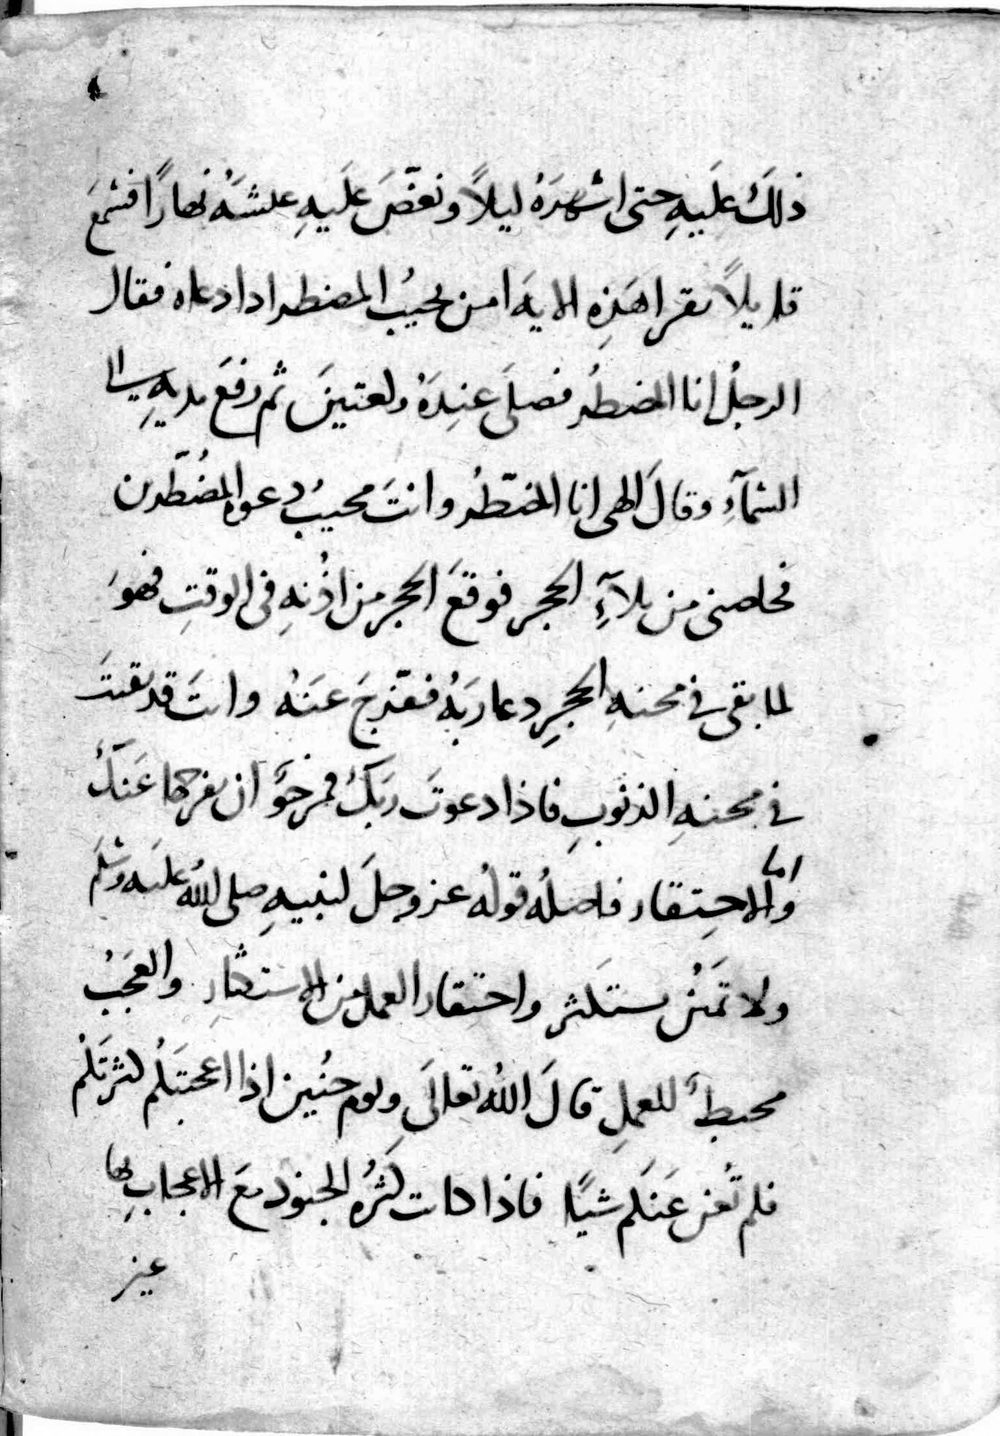 ذلكَ عَلَيهِ حتى اشهرَهُ ليلاً ونغصَّ عَلَيهِ عيشَهُ نهارًا فسَمعَ
قاريًلا يقرا هَذِهِ الايَه امن يجيبُ المضطر اذا دعاه فقال
الرجلُ انا المضطرُ فصلىَ عِندَهُ ركعتينَ ثم رفعَ يديهِ الى
السّمآءِ وقالَ الهى انا المضّطرُ وانتَ مجيبُ دعوه المُضُطّرين
فخلصنى من بلآءِ الحجر فوقعَ الحجر من اذُنهِ فى الوقتِ فهوَ
لما بقى فى محنهِ الحجرِ دعا ربَهُ ففرّجَ عَنهُ وانتَ قد بقيتَ
فى محنهِ الذنوبِ فاذا دعوتَ ربَكَ فمرجوَّ ان يفرجها عَنكَ
واما الاحِتقار فاصلُه قولُه عز وجلَ لنبيهِ صلى اللهُ عليه وسَلمَ
ولا تمَنُن تستَكثر واحتقار العمل من الاستكثارِ والعجَبُ
محبطٌ للعملِ قالَ اللهُ تعالىَ ويوم حنُين اذا اعجبَتكُم كثرتَكُم
فلم تُغن عَنكَم شيًا فاذا كانت كَثرُه الجنود معَ الاعجابِ بها
عير